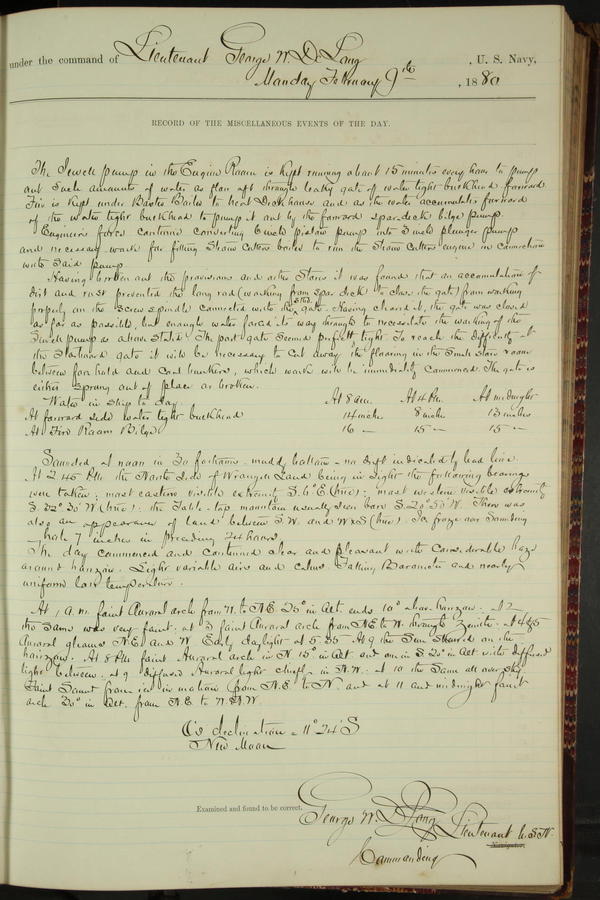 under the command of Lieutenant George W. De Long, U. S. Navy,
Monday February 9th, 1880
RECORD OF THE MISCELLANEOUS EVENTS OF THE DAY.
The Sewell pump in the Engine Room is kept running about 15 minutes every hour to pump
out such amounts of water as flow aft through leaky gate of water tight bulkhead forward.
Fire is kept under Baxter Boiler to heat Deckhouse and as the water accumulates forward
of the water tight bulkhead to pump it out by the forward spar deck bilge pump.
Engineers force continue converting 6 inch piston pump into 3 inch plunger pump
and necessary work for fitting Steam Cutters boiler to run the Steam Cutters engine in connection
with said pump
Having broken out the provisions and other stores it was found that an accumulation of
dirt and rust prevented the long rod (working from spar deck to close the gate) from working
properly on the screw spindle connected with the stbd. gate. Having cleared it, the gate was closed
as far as possible, but enough water forced its way through to necessitate the working of the
Sewell pump as above stated. The port gate seemed perfectly tight. To reach the difficulty at
the starboard gate it will be necessary to cut away the flooring in the small store room
between fore hold and coal bunkers, which work will be immediately commenced. The gate is
either sprung out of place or broken.
Water in ship to day At 8 am. At 4 Pm. At midnight
At forward side water tight bulkhead 14 inches 8 inches 13 inches
At Fire Room Bilge 16 — 15 — 15 —
Sounded at noon in 30 fathoms - muddy bottom - no drift indicated by lead line.
At 2.45 PM the North side of Wrangel Land being in sight the following bearings
were taken: most eastern visible extremity S. 6° E (true): most western visible extremity
S. 22° 30' W (true): the Table-top mountain usually seen bore S. 20° 30' W. There was
also an appearance of land between S.W. and WxS (true). Ice froze over Sounding
hole 7 inches in preceding 24 hours
The day commenced and continued clear and pleasant with considerable haze
around horizon. Light variable airs and calms. Falling Barometer and nearly
uniform low temperature.
At 1 a.m. faint Auroral arch from N. to N.E. 25° in alt. ends 10° above horizon. at 2
the same was very faint. at 3 faint Auroral arch from NE to W. through Zenith. at 4 & 5
Auroral gleams N.E. and W. Early daylight at 5.35. At 9 the Sun showed on the
horizon. At 8 PM faint Auroral arch in N 15° in alt and one in S 20° in alt. with diffused
light between. at 9 diffused Auroral light chiefly in N.W. at 10 the same all over sky.
Faint in motion from N.E. to N. and at 11 and midnight faint
arch 20° in alt. from N.E. to N.N.W.
O's declination = 11° 24' S
New Moon
Examined and found to be correct.
George W. De Long Lieutenant U.S.N.
Navigator.
Commanding